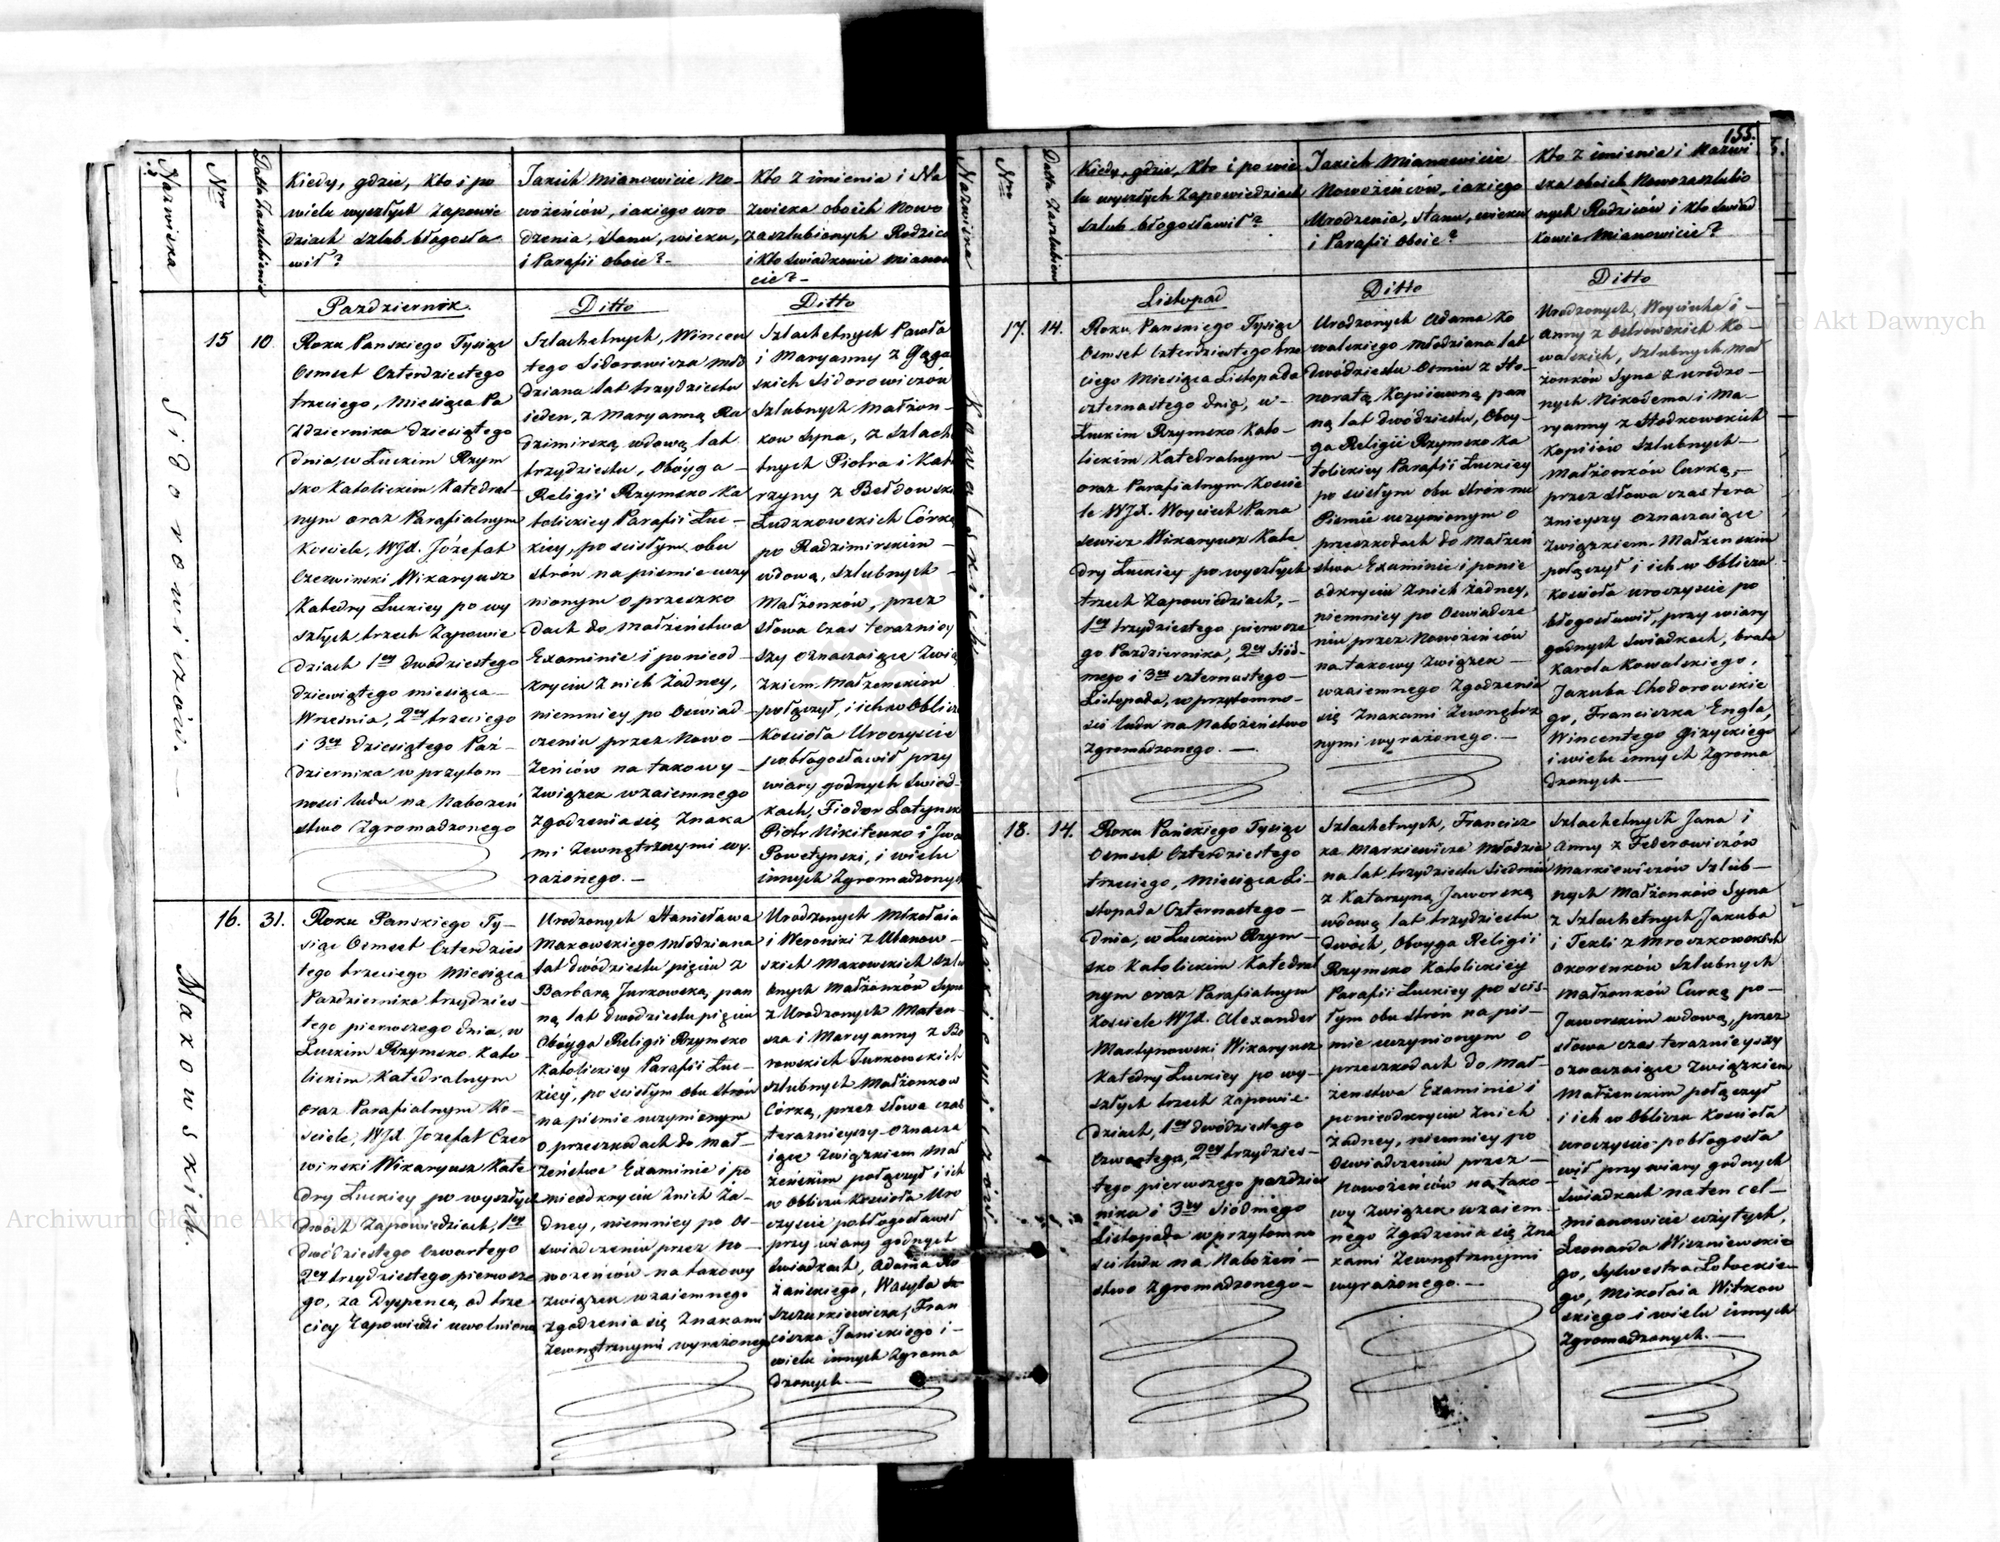 Nazwiska
Nro
Datta Zaszlubienia
Kiedy, gdzie, Kto i po
wielu wyszłych Zapowie
dziach szlub błogosła
wił?
Jakich mianowicie No-
wożeńców, iakiego uro
dzenia, stanu, wieku,
i Parafii oboie?
Kto z imienia i Na
zwiska obóich Nowo
zaszlubionych Rodzice
i Kto świadkowie miano
cie?
Październik
Ditto
Ditto
15
10
Sidorowiczów.
Roku Panskiego Tysiąc
Osmset Czterdziestego
trzeciego, Miesiąca Pa
zdziernika dziesiątego
dnia, w Łuckim Rzym
sko Katolickim Katedral-
nym oraz Parafialnym
Kosciele, WJX. Józefat
Czerwinski Wikaryusz
Katedry Łuckiey po wy
szłych trzech Zapowie
dziach 1ey dwódziestego
dziewiątego miesiąca
Wrzesnia, 2ey trzeciego
i 3ey dziesiątego Paź-
dziernika w przytom
nosci ludu na Nabożeń
stwo Zgromadzonego
Szlachetnych, Wincen
tego Sidorowicza Mło
dziana lat trzydziestu
ieden, z Maryanną Ra
dzimirską wdową lat
trzydziestu, Obóyga
Religii Rzymsko Ka
tolickiey Parafii Łuc-
kiey, po scisłym obu
strón na pismie uczy
nionym o przeszko
dach do Małżeństwa
Examinie i po nieod
kryciu z nich Żadney,
niemniey po Oswiad
czeniu przez Nowo
Żeńców na takowy
Związek wzaiemnego
Zgodzenia się Znaka
mi Zewnętrznymi wy
rażonego.
Szlachetnych Pawła
i Maryanny z Gąga
skich Sidorowiczów
Szlubnych małżon-
kow Syna, z Szlach
tnych Piotra i Kata
rzyny z Bełdowsk
Ludzkowskich Córką
po Radzimirskim
wdową, szlubnych
Małżonków, przez
słowa Czas teraznie
szy oznaczaiące Zwią
zkiem Małżenskim
połączył, i ich w Oblicz
Kościoła Uroczyscie
pobłogosławił przy
wiary godnych Swiad-
kach, Fiodor Łatynsk
Piotr Nikitenko i Iwa
Powetynski, i wielu
innych Zgromadzonych
16.
31.
Makowskich.
Roku Panskiego Ty-
siąc Osmset Czterdzies
tego trzeciego Miesiąca
Pazdziernika trzydzies-
tego pierwszego dnia, w
Łuckim Rzymsko Kato-
lickim Katedralnym
oraz Parafialnym Ko-
sciele, WJX Jozefat Czer
winski Wikaryusz Kate
dry Łuckiey po wyszłych
dwóch Zapowiedziach, 1ey
dwódziestego Czwartego
2ey trzydziestego pierwsze
go, za Dyspensą od trze
ciey Zapowiedzi uwolniono
Urodzonych Stanisława
Makowskiego Młodziana
lat dwódziestu pięciu z
Barbarą Jurkowską pan
ną lat dwódziestu pięciu
Obóyga Religii Rzymsko
Katolickiey Parafii Łuc-
kiey, po scisłym obu strón
na pismie uczynionym
o przeszkodach do Mał-
żeństwa Examinie i po
nieodkryciu z nich Ża-
dney, niemniey po Os-
wiadczeniu przez No-
wożeńców na takowy
Związek wzaiemnego
zgodzenia się Znakami
Zewnętrznymi wyrażonego
Urodzonych Mikołaia
i Weroniki z Ułanow-
skich Makowskich Szlu
bnych Małżonków Syna
z Urodzonych Mateu-
sza i Maryanny z Bo
rowskich Jurkowskich
szlubnych Małżonkow
Córką, przez słowa czas
teraznieyszy oznacza
iące Związkiem Mał
żeńskim połączył i ich
w Obliczu Kościoła Uro
czyscie pobłogosławił
przy wiary godnych
Swiadkach, Adama Ro
żańskiego, Wasyla
Szczurkiewicza, Fran
ciszka Janickiego i
wielu innych Zgroma
dzonych
155.
Nazwiska
Nro
Datta Zaszlubien
Kiedy, gdzie, Kto i po wie
lu wyszłych Zapowiedziach
szlub błogosławił?
Jakich Mianowicie
Nowożeńców, iakiego
Urodzenia, Stanu, wieku
i Parafii Oboie?
Kto z imienia i Nazwi
ska oboich Nowozaszlubio
nych Rodziców i Kto świad
kowie Mianowicie?
Listopad
Ditto
Ditto
17.
14.
Kowalskich
Roku Panskiego Tysiąc
Osmset Czterdziestego trze
ciego Miesiąca Listopada
czternastego dnia, w
Łuckim Rzymsko Kato-
lickim Katedralnym
oraz Parafialnym Koscie
le WJX. Woyciech Pana
sewicz Wikaryusz Kate
dry Łuckiey po wyszłych
trzech Zapowiedziach,
1ey trzydziestego pierwsze
go Pazdziernika, 2ey Siód-
mego i 3ey czternastego
Listopada, w przytomno-
sci ludu na Nabożeństwo
Zgromadzonego.
Urodzonych Adama Ko
walskiego Młodziana lat
dwódziestu Osmiu z Ho-
noratą Kopiiówną pan
ną lat dwódziestu, Oboy-
ga Religii Rzymsko Ka
tolickiey Parafii Łuckiey
po scisłym obu strón na
Pismie uczynionym o
przeszkodach do Małżeń
stwa Examinie i ponie
odkryciu z nich żadney,
niemniey po Oswiadcze
niu przez Nowożeńców
na takowy Związek
wzaiemnego Zgodzenia
się Znakami Zewnętrz
nymi wyrażonego.
Urodzonych, Woyciecha i
Anny z Ostrowskich Ko
walskich, Szlubnych Mał
żonków Syna z urodzo-
nych Nikodema i Ma-
ryanny z Hodkowskich
Kopiiów Szlubnych
Małżonków Curką,
przez słowa czas tera
znieyszy oznaczaiące
Związkiem Małżenskim
połączył i ich w Obliczu
Kościoła uroczyscie po
błogosławił, przy wiary
godnych Swiadkach, brata
Karola Kowalskiego,
Jakuba Chodorowskie
go, Franciszka Engla,
Wincentego Giżyckiego
i wielu innych Zgroma
dzonych
18.
14.
Markiewiczów
Roku Pańskiego Tysiąc
Osmset Czterdziestego
trzeciego, Miesiąca Li-
stopada Czternastego
Dnia, w Łuckim Rzym-
sko Katolickim Katedral
nym oraz Parafialnym
Kosciele WJX. Alexander
Martynowski Wikaryusz
Katedry Łuckiey po wy-
szłych trzech Zapowie
dziach, 1ey dwódziestego
Czwartego, 2ey trzydzies-
tego pierwszego pazdzier
nika i 3ey Siódmego
Listopada w przytomno
sci ludu na Nabożeń-
stwo Zgromadzonego
Szlachetnych, Francisz
ka Markiewicza Młodzia
na lat trzydziestu Siedmiu
z Katarzyną Jaworską
wdową lat trzydziestu
dwóch, Obóyga Religii
Rzymsko Katolickiey
Parafii Łuckiey po scis-
łym obu strón na pis-
mie uczynionym o
przeszkodach do Mał-
żenstwa Examinie i
ponieodkryciu z nich
Żadney, niemniey po
Oswiadczeniu przez
Nowożeńców na tako-
wy Związek wzaiem-
nego Zgodzenia się Zna
kami Zewnętrznymi
wyrażonego.
Szlachetnych Jana i
Anny z Federowiczów
Markiewiczów Szlub-
nych Małżonków Syna
z Szlachetnych Jakuba
i Tekli z Mroczkowskich
Okorenków Szlubnych
Małżonków Curką po
Jaworskim wdową, przez
słowa czas teraznieyszy
oznaczaiące Związkiem
Małżenskim połączył
i ich w Obliczu Kościoła
uroczyscie pobłogosła
wił przy wiary godnych
Świadkach na ten cel
mianowicie użytych,
Leonarda Wiszniewskie
go, Sylwestra Łotockie-
go, Mikołaia Witkow
skiego i wielu innych
Zgromadzonych.
Archiwum Główne Akt Dawnych
Archiwum Główne Akt Dawnych